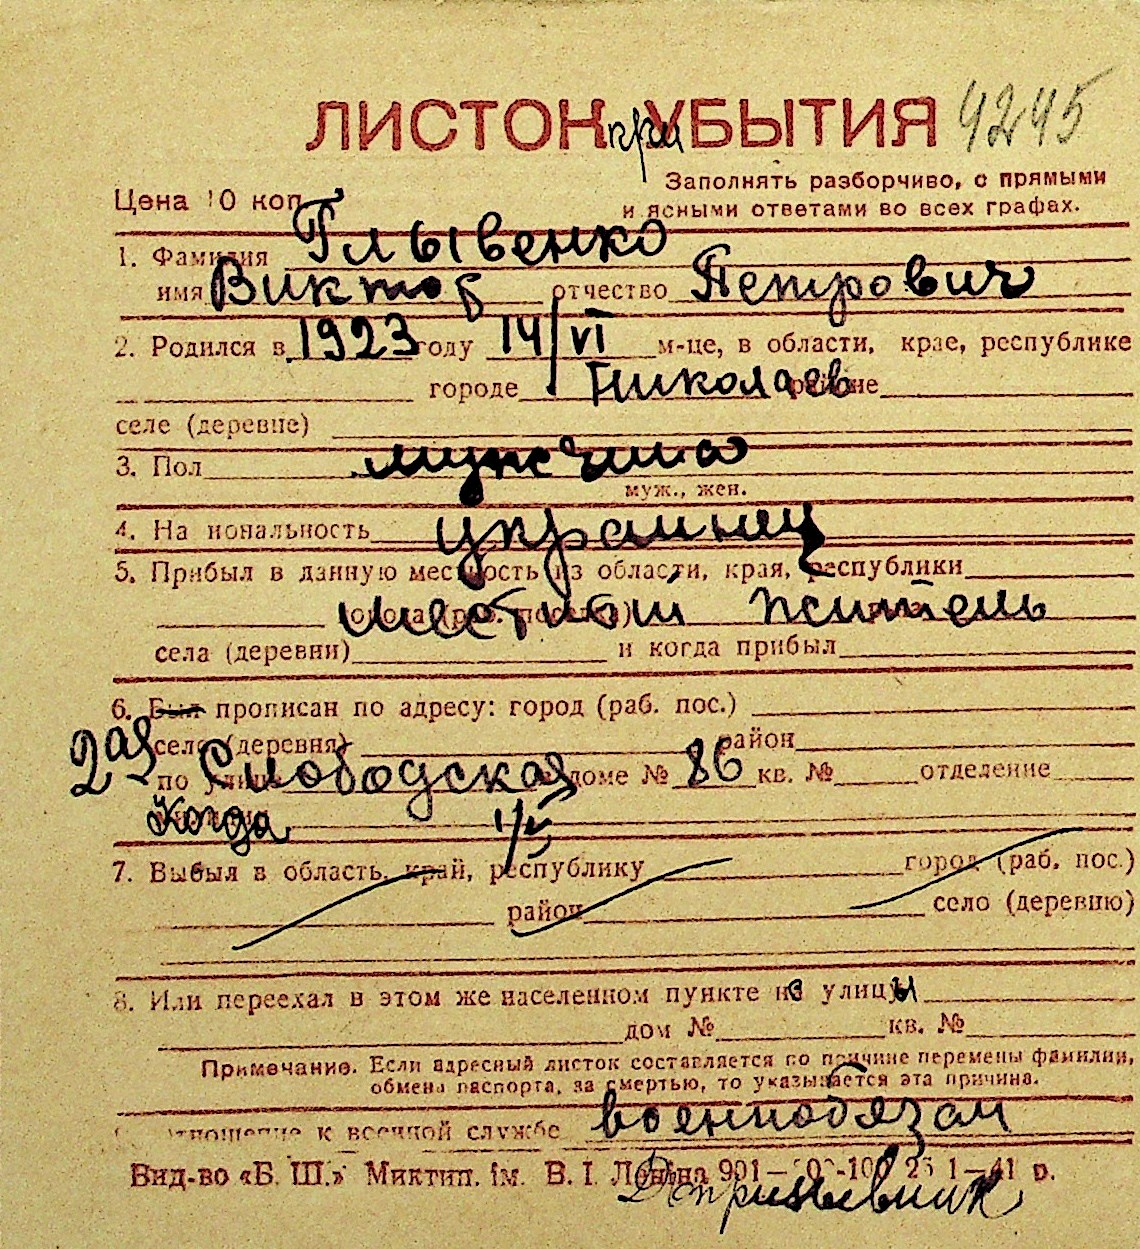 ЛИСТОК при УБЫТИЯ 4245
Цена 10 коп.
Заполнять разборчиво, с прямыми
и ясными ответами во всех графах.
1. Фамилия Глывенко
имя Виктор отчество Петрович
2. Родился в 1923 году 14/VI м-це, в области, крае, республике
городе Николаев районе
селе (деревне)
3. Пол мужчина
муж., жен.
4. Национальность украинец
5. Прибыл в данную местность из области, края, республики
города (раб. поселка) местный житель
села (деревни) и когда прибыл
6. Был прописан по адресу: город (раб. пос.)
село (деревня) район
по улице 2ая Слободская в доме № 86 кв. № отделение
Когда 1/V
7. Выбыл в область, край, республику город (раб. пос.)
район село (деревню)
8. Или переехал в этом же населенном пункте из улицы
дом № кв. №
Примечание. Если адресный листок составляется по причине перемены фамилии,
обмена паспорта, за смертью, то указывается эта причина.
отношение к военной службе военнообязан
Вид-во «Б. Ш.» Миктип. ім. В. І. Леніна 901— 1—41 р.
Допризывник